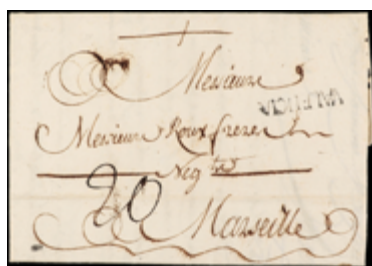 Messieurs
VALENCIA
Messieurs Roux freres
Neg.ts
20
Marseille